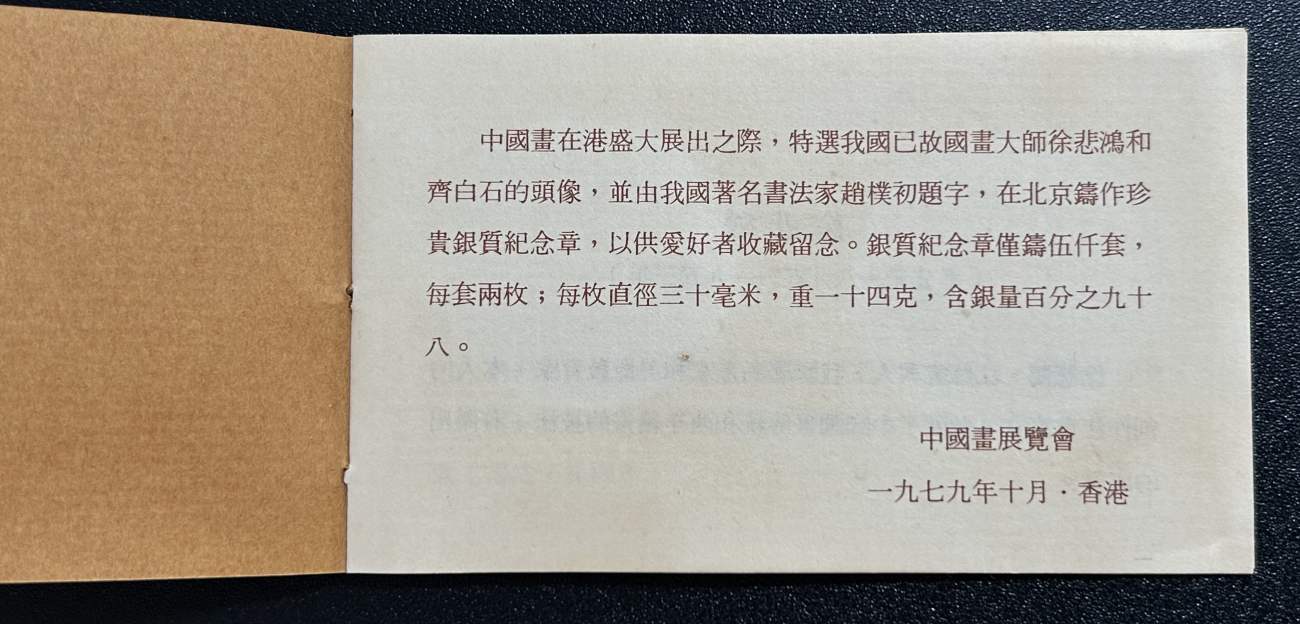 中國畫在港盛大展出之際，特選我國已故國畫大師徐悲鴻和
齊白石的頭像，並由我國著名書法家趙樸初題字，在北京鑄作珍
貴銀質紀念章，以供愛好者收藏留念。銀質紀念章僅鑄伍仟套，
每套兩枚；每枚直徑三十毫米，重一十四克，含銀量百分之九十
八。
中國畫展覽會
一九七九年十月·香港